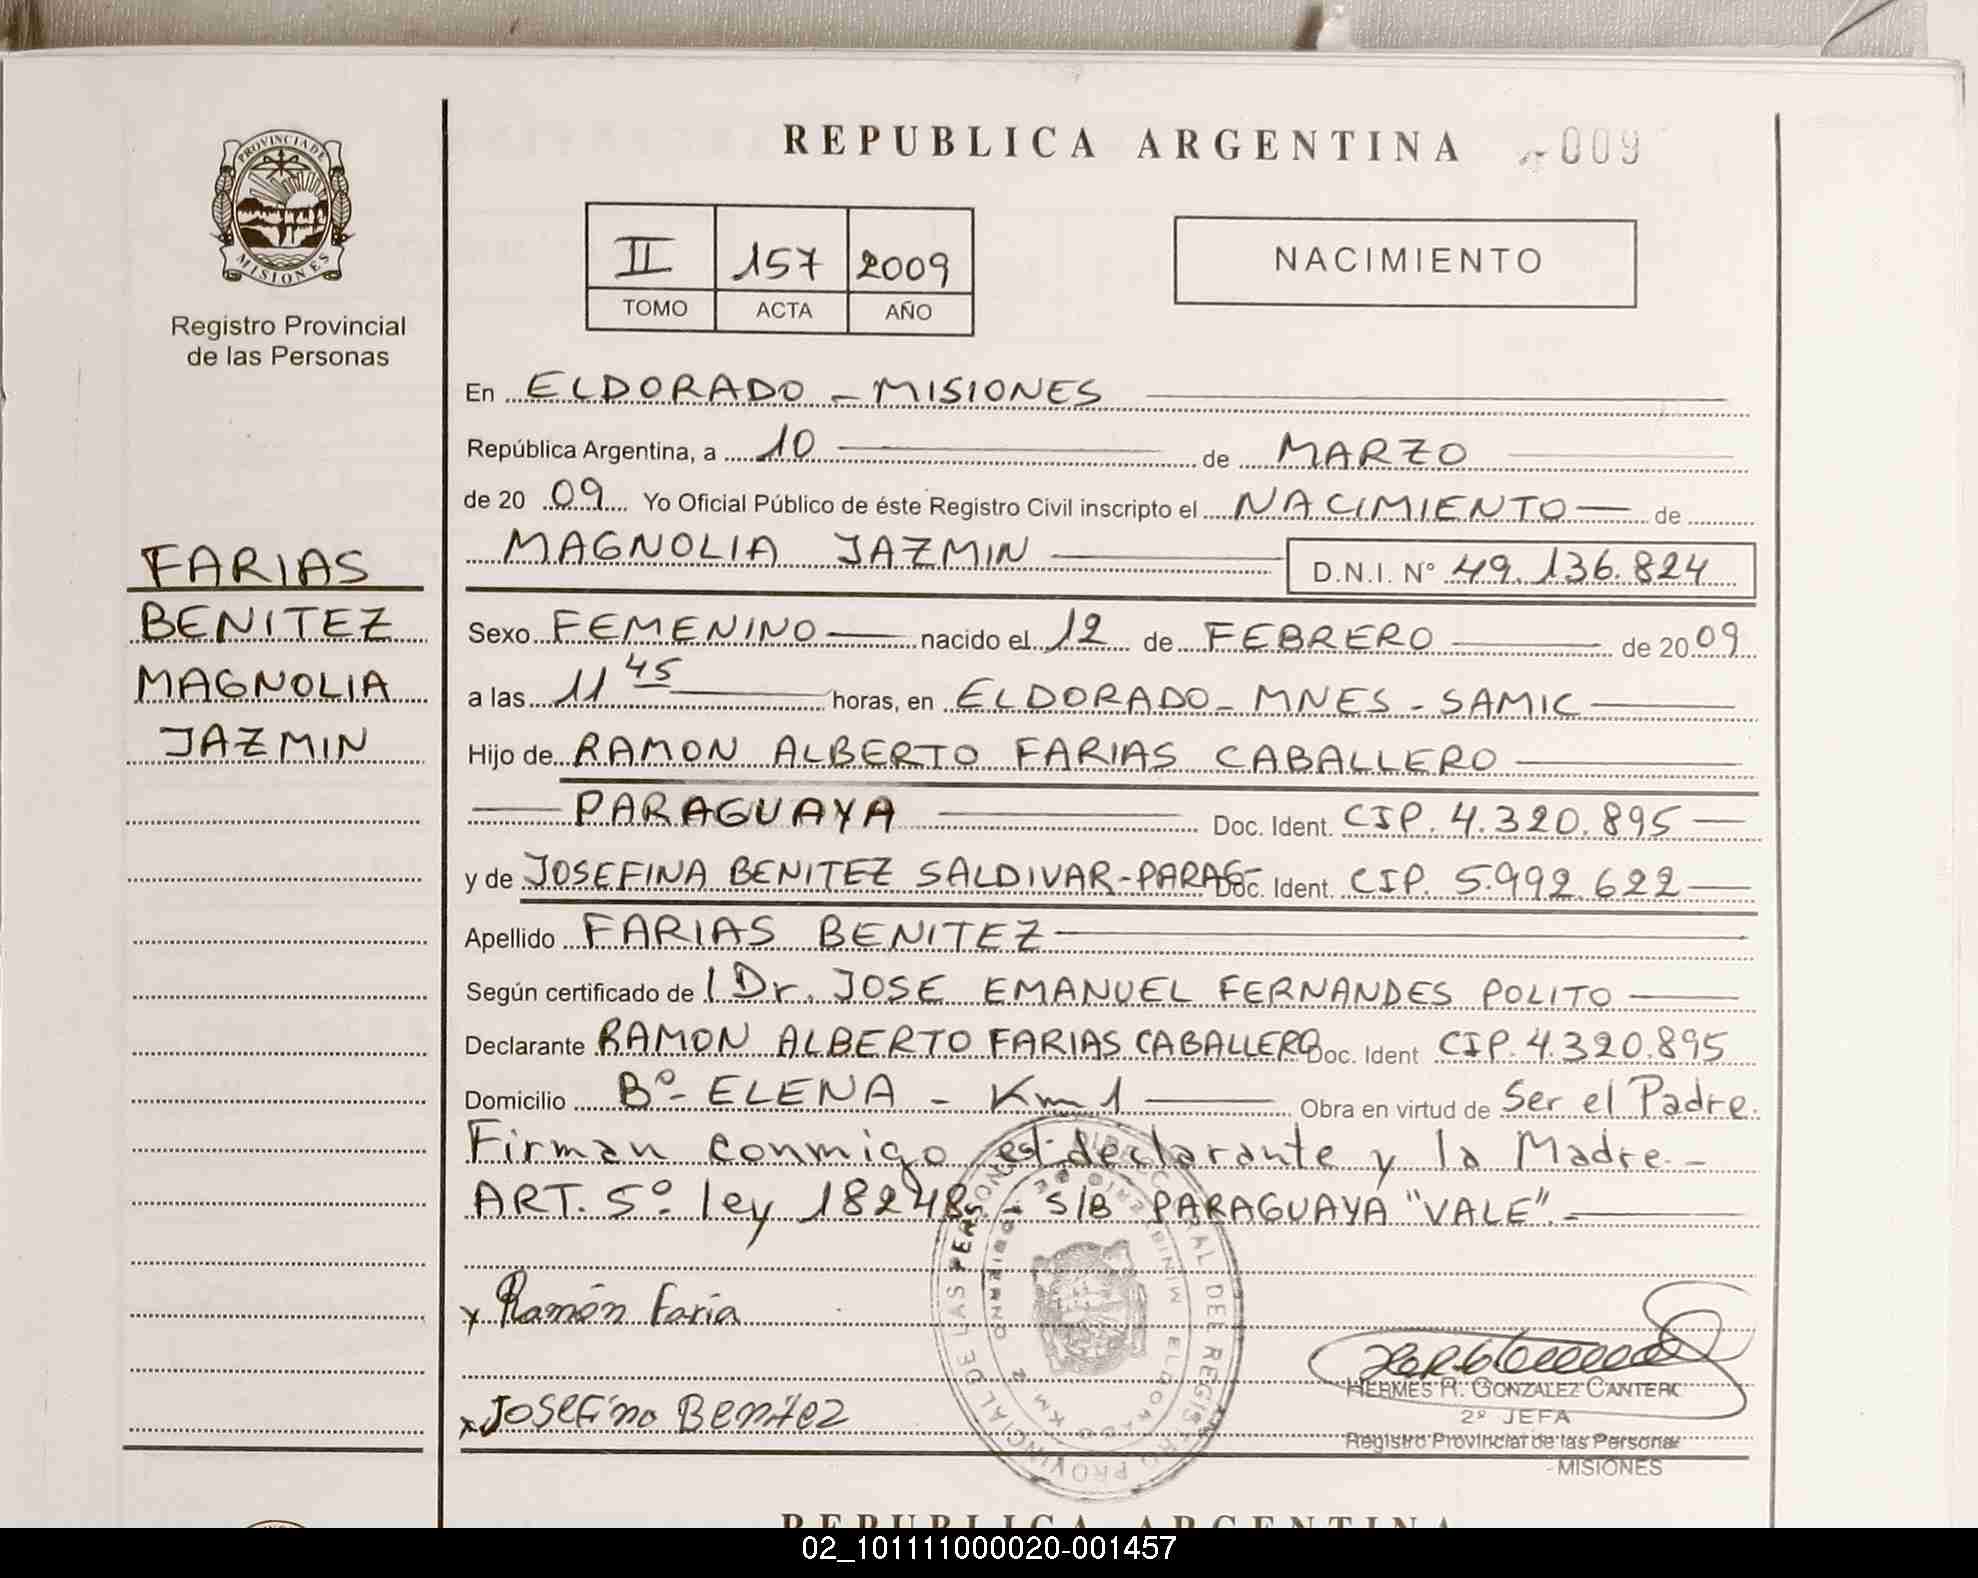 REPUBLICA ARGENTINA
009
PROVINCIA DE MISIONES
Registro Provincial
de las Personas
II 157 2009
TOMO ACTA AÑO
NACIMIENTO
En ELDORADO - MISIONES
República Argentina, a 10 de MARZO
de 20 09 Yo Oficial Público de éste Registro Civil inscripto el NACIMIENTO de
MAGNOLIA JAZMIN D.N.I. N° 49.136.824
FARIAS
BENITEZ
MAGNOLIA
JAZMIN
Sexo FEMENINO nacido el 12 de FEBRERO de 2009
a las 11 45 horas, en ELDORADO - MNES - SAMIC
Hijo de RAMON ALBERTO FARIAS CABALLERO
PARAGUAYA Doc. Ident. CIP. 4.320.895
y de JOSEFINA BENITEZ SALDIVAR-PARAG Doc. Ident. CIP. 5.992.622
Apellido FARIAS BENITEZ
Según certificado de Dr. JOSE EMANUEL FERNANDES POLITO
Declarante RAMON ALBERTO FARIAS CABALLERO Doc. Ident CIP. 4.320.895
Domicilio B°- ELENA - Km 1 Obra en virtud de Ser el Padre.
Firman conmigo el declarante y la Madre.-
ART. 5° ley 18248. S/B PARAGUAYA "VALE".-
x Ramón Faria
x Josefina Benitez
HERMES R. GONZALEZ CANTERO
2º JEFA
Registro Provincial de las Personas
- MISIONES
REPUBLICA ARGENTINA
02_101111000020-001457